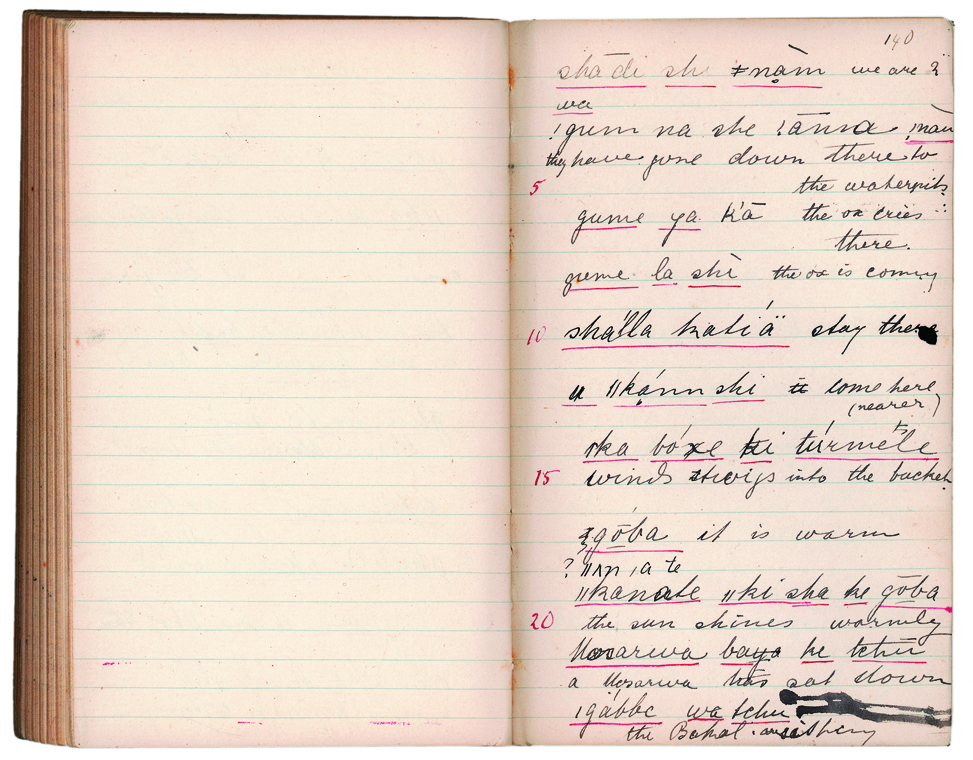 140
shādi shi ǂnạm we are 2
wa
!gum na she !ānna ǃnau
they have gone down there to
5 the waterpits
gume ya k'ā the ox cries
there.
gume la shi the ox is coming
10 shálla katiä stay there
u ǁkạ́nn shi come here
(nearer)
ǀka bóxe ki túrméle
15 winds twigs into the bucket
gōba it is warm
?
ǁkanate ǁki sha ke gōba
20 the sun shines warmly
Mosarwa baya ke tchū
a Mosarwa has sat down
ǀgábbe wa tchu
the Bakal